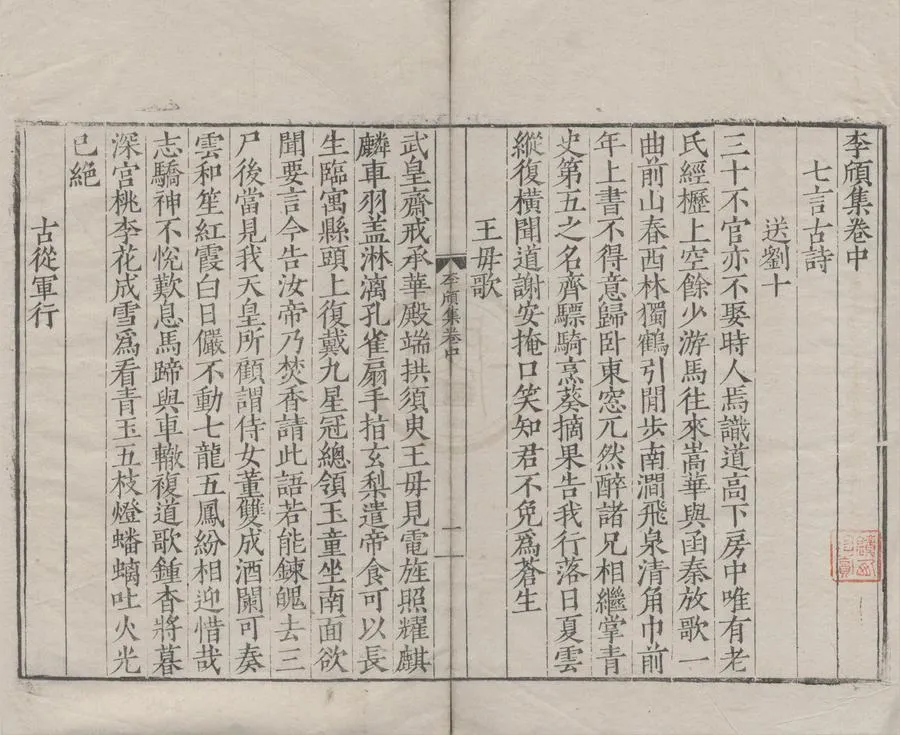 李頎集卷中
七言古詩
送劉十
三十不官亦不娶時人焉識道高下房中唯有老
氏經櫪上空餘少游馬往來嵩華與函秦放歌一
曲前山春西林獨鶴引閒步南澗飛泉清角巾前
年上書不得意歸卧東窓兀然醉諸兄相繼掌青
史第五之名齊驃騎烹葵摘果告我行落日夏雲
縱復橫聞道謝安掩口笑知君不免爲蒼生
王毋歌
李頎集卷中
一
武皇齋戒承華殿端拱須臾王毋見電旌照耀麒
麟車羽盖淋漓孔雀扇手指玄梨遣帝食可以長
生臨寓縣頭上復戴九星冠總領玉童坐南面欲
聞要言今告汝帝乃焚香請此語若能鍊魄去三
尸後當見我天皇所顧謂侍女董雙成酒闌可奏
雲和笙紅霞白日儼不動七龍五鳳紛相迎惜哉
志驕神不悅歎息馬蹄與車轍複道歌鍾杳將暮
深宮桃李花成雪爲看青玉五枝燈蟠螭吐火光
已絕
古從軍行